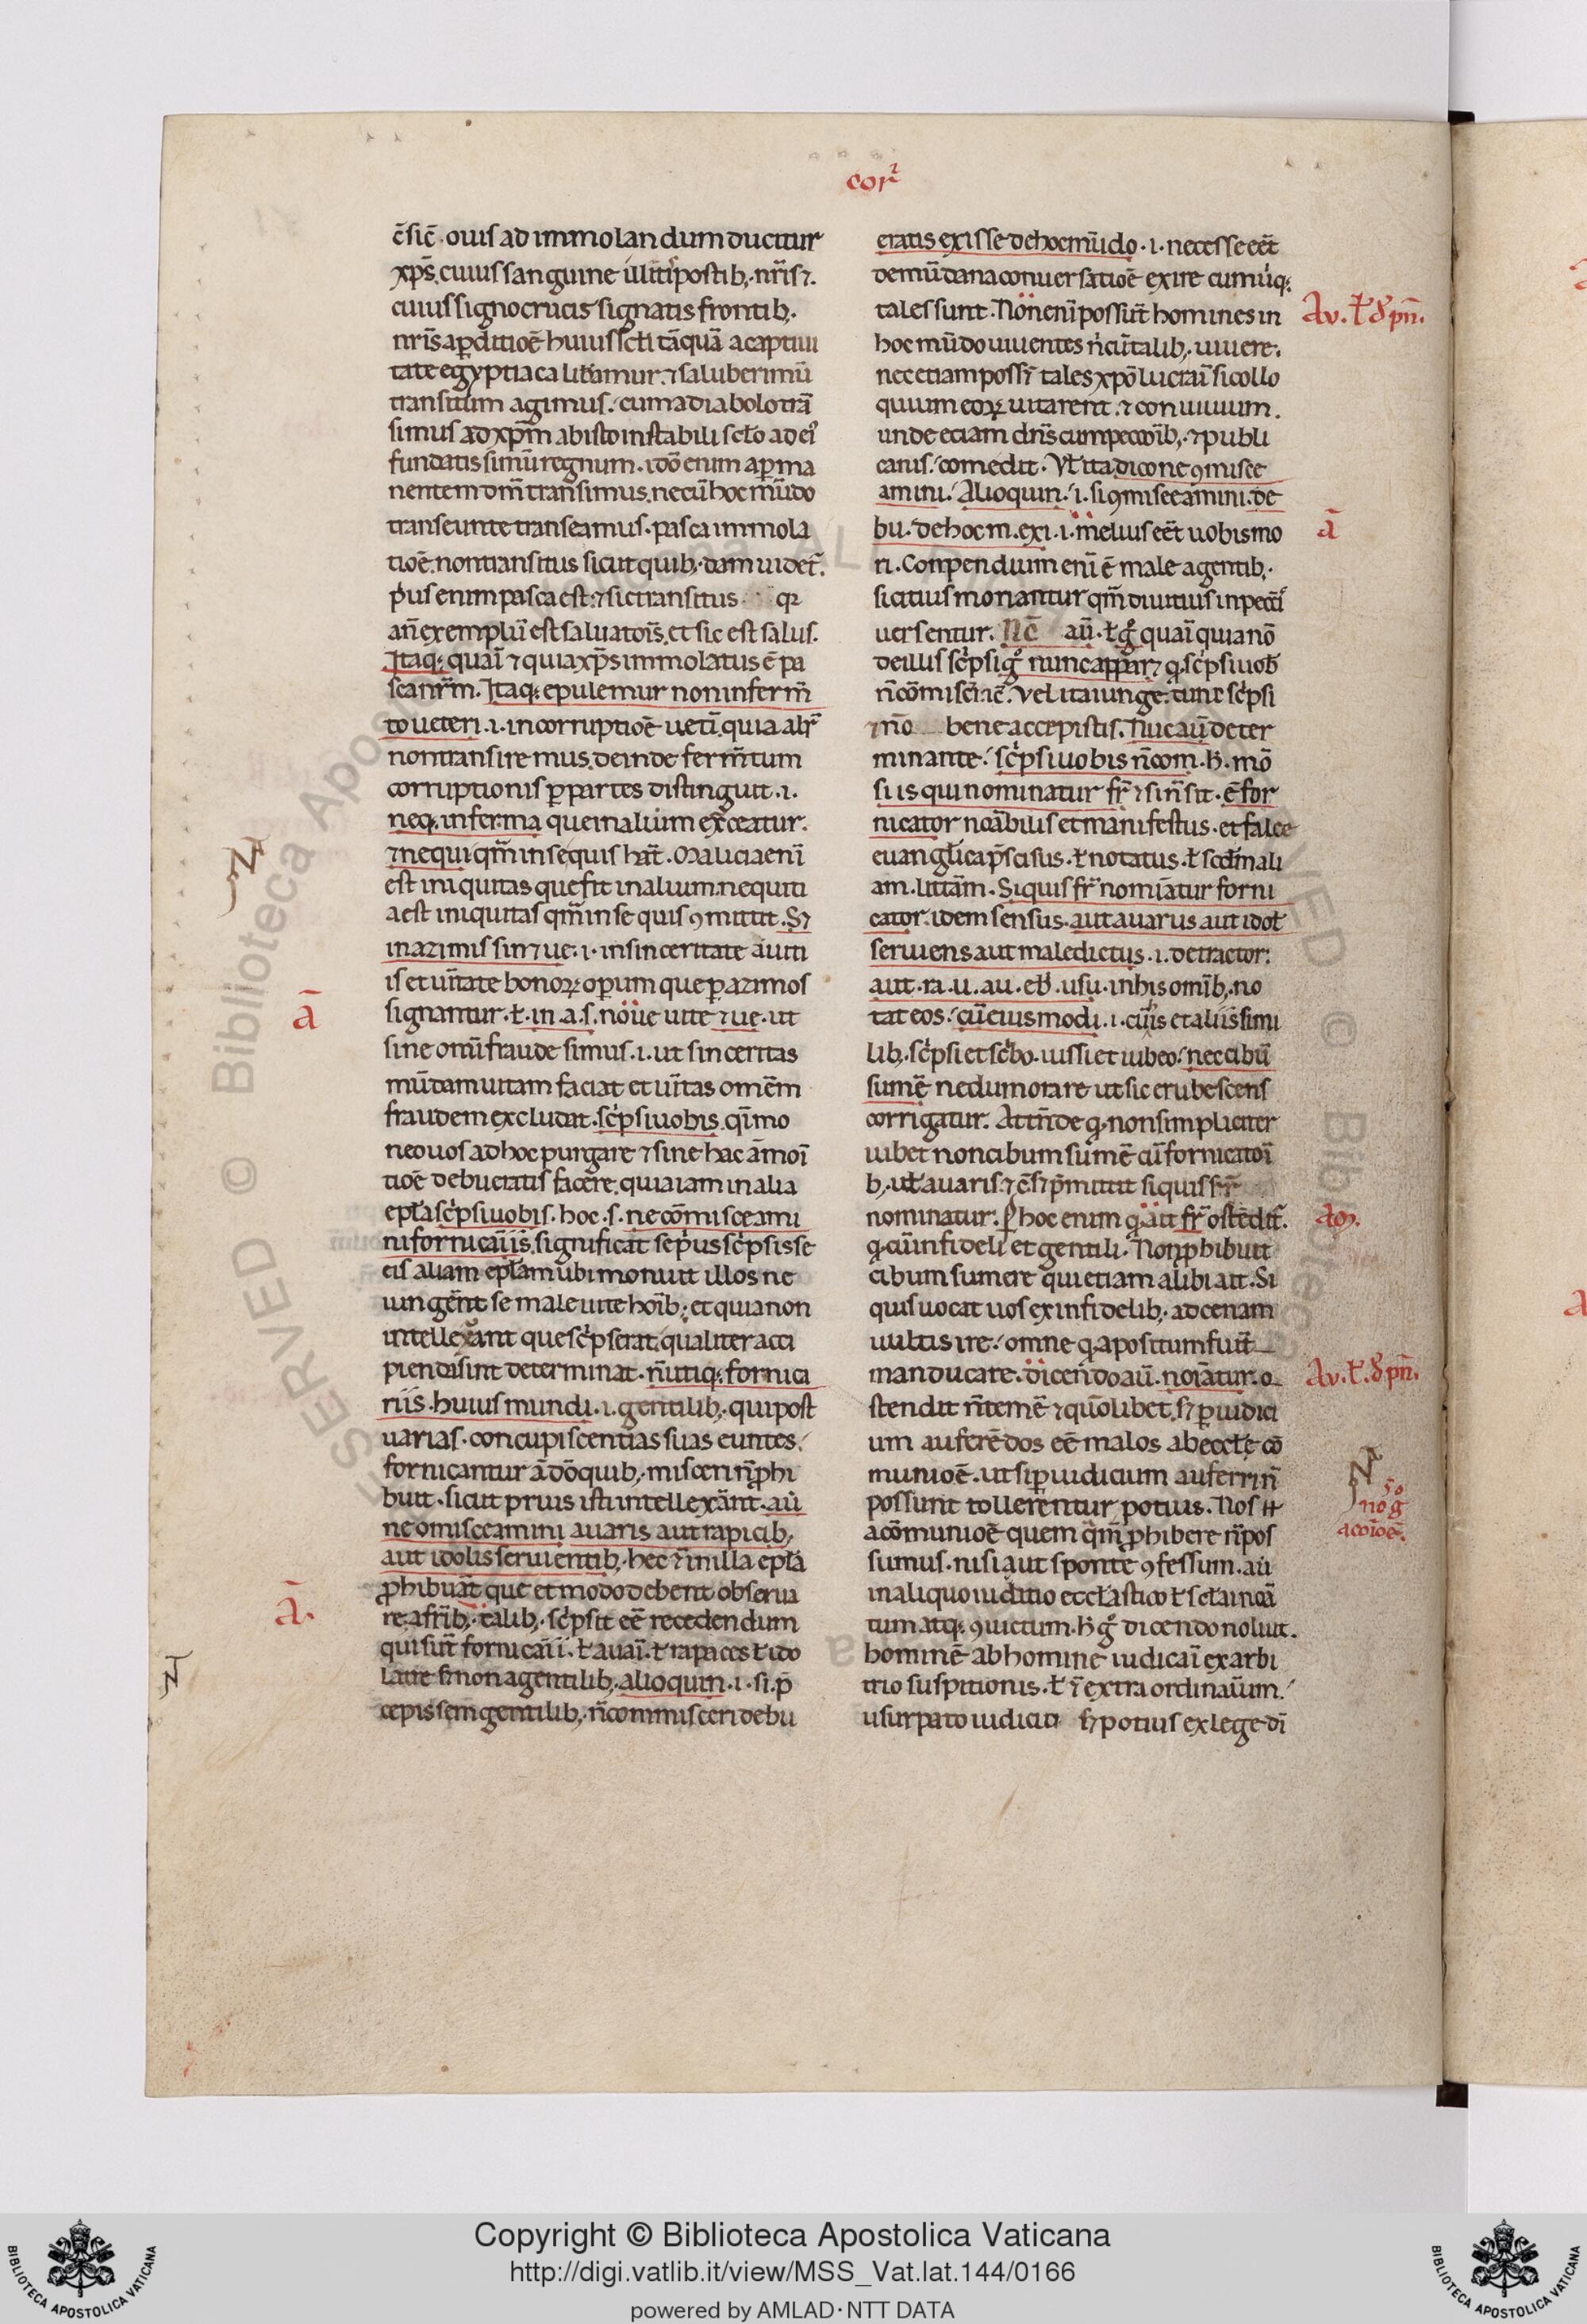 cor²
c̄sic̄. ouis ad immolandum ducitur
xp̄s. cuius sanguine illitis postib; nr̄is ⁊.
cuius signo crucis signatis frontib;.
nr̄is a ꝑditiōe huius scl̄i tāquā a captiui
tate egyptiaca lib̄amur. ⁊ saluberimū
transitum agimus. cum a diabolo trā
simus ad xp̄m ab isto instabili scl̄o ad ei'
fundatissimū regnum. idō enim a ꝑma
nentem dm̄ transimus. ne cū hoc mūdo
transeunte transeamus. pasca immola
tiōe. non transitus sicut quib;dam uidet᷑.
p̕us enim pasca est. ⁊ sic transitus qꝛ
an̄ exemplū est saluatoīs. et sic est salus.
Itaq; quaī ⁊ quia xp̄s immolatus ē pa
sca nr̄m. Itaq; epulemur non in ferm̄
to ueteri .i. in corruptiōe uetī. quia alr̄
non transiremus. deinde ferm̄tum
corruptionis ꝑ partes distinguit .i.
neq; in ferma que in alium exc̕ceatur.
⁊ nequi qm̄ in se quis hāt. Malicia enī
est iniquitas que fit in alium. nequiti
a est iniquitas qm̄ in se quis ꝯmittit. S⁊
in azimis sin ⁊ ue. i. in sinceritate a uiti
is et uītate bonoꝝ oꝑum que ꝑ azimos
signantur. ł. in .a.s. noue uite ⁊ ue. ut
sine omī fraude simus .i. ut sinceritas
mūdam uitam faciat et uītas omēm
fraudem excludat. sc̕psi uobis. qī mo
neo uos ad hoc purgare ⁊ sine hac āmoī
tiōe debueratis facere. quia iam in alia
epl̄a sc̕psi uobis. hoc .s. ne cōmisceami
ni fornicaīis. significat se p̕us sc̕psisse
eis aliam epl̄am ubi monuit illos ne
iungēnt se male uite hoīb; et quia non
intellexānt que sc̕pserat. qualiter acci
pienda sint determinat. n̄ utiq; fornica
riis. huius mundi .i. gentilib;. qui post
uarias. concupiscentias suas euntes.
fornicantur ā dō quib; misceri n̄ ꝓhi
buit. sicut prius isti intellexānt. aū
ne omisceamini auaris aut rapicib;
aut idolis seruientib;. hec ēt in illa epl̄a
ꝓhibuāt que et modo debent obserua
re. a frīb; talib;. sc̕psit eē recedendum
qui sūt fornicaīi. ł auaī. ł rapaces ł ido
latre s; non a gentilib;. alioquin .i. si p̄
cepissem gentilib;. n̄ commisceri debu
eratis exisse de hoc mūdo .i. necesse eēt
de mūdana conuersatiōe exire cum ūq;
tales sunt. Non enī possūt homines in
hoc mūdo uiuentes n̄ cū talib; uiuere.
nec etiam possēt tales xp̄o lucraī si collo
quium eoꝝ uitarent. ⁊ conuiuium.
unde etiam dn̄s cum peccatoīb; ⁊ publi
canis. comedit. Vł ita dico ne ꝯmisce
amini. Alioquin .i. si ꝯmisceamini. de
bu. de hoc m. exi .i. melius eēt uobis mo
ri. Conpendium enī ē male agentib;.
si citius moriantur qm̄ diutius in pecc̄is
uersentur. Nc̄ aū. ł g̊ quaī quia nō
de illis sc̕psi g̊ nunc appar⁊ q sc̕psi uob̄
n̄ cōmisc̕ic̄. Vel ita iunge. tunc sc̕psi
⁊ nō bene accepistis. Nuc aū deter
minante. sc̕psi uobis n̄ com. h̄. mō
si is qui nominatur fr̄ ⁊ sin̄ sit. ē for
nicator noābilis et manifestus. et false
euanglica p̄scisus. ł notatus. ł scd̄m ali
am. littām. Siquis fr̄ nomīatur forni
cator. idem sensus. aut auarus aut idoł
seruiens aut maledictus .i. detractor.
aut. ra. u. au. eb̄. usu. in his omīb;. no
tat eos. cū eiusmodi .i. cū is et aliis simi
lib;. sc̕psi et sc̕bo. iussi et iubeo. nec cibū
sumē ne dum orare ut sic erubescens
corrigatur. Attn̄de q non simpliciter
iubet non cibum sumē cū fornicatoī
b;. uł auaris. ⁊ c̄. s⁊ p̄mittit siquis fr̄
nominatur. ꝑ hoc enim q ait fr̄ ostēdit᷑.
q cū infideli et gentili. Non ꝓhibuit
cibum sumere qui etiam alibi ait. Si
quis uocat uos ex infidelib;. ad cenam
uultis ire. omne q apositum fuīt
manducare. dicendo aū. noīatur. o
stendit n̄ temē ⁊ quōlibet. s⁊ ꝑ iudici
um auferēdos eē malos ab eccl̄e cō
muniōe. ut si ꝑ iudicium auferri n̄
possunt tollerentur potius. Nos n̄
a cōmuniōe quem qm̄ ꝓhibere n̄ pos
sumus. nisi aut sponte ꝯfessum. aū
in aliquo iuditio eccl̄astico ł scl̄ai noā
tum atq; ꝯuictum. h̄ g̊ dicendo noluit.
hominē ab homine iudicaī ex arbi
trio suspitionis. ł ⁊̄ extra ordinaīum.
usurpato iudicin s⁊ potius ex lege dī
ā
ā.
Av. ł ꝺ pn̄.
ā
Ao.
Av. ł. ꝺ pn̄.
no g
acoīoē.
Copyright © Biblioteca Apostolica Vaticana
http://digi.vatlib.it/view/MSS_Vat.lat.144/0166
powered by AMLAD·NTT DATA
BIBLIOTECA APOSTOLICA VATICANA
BIBLIOTECA APOSTOLICA VATICANA